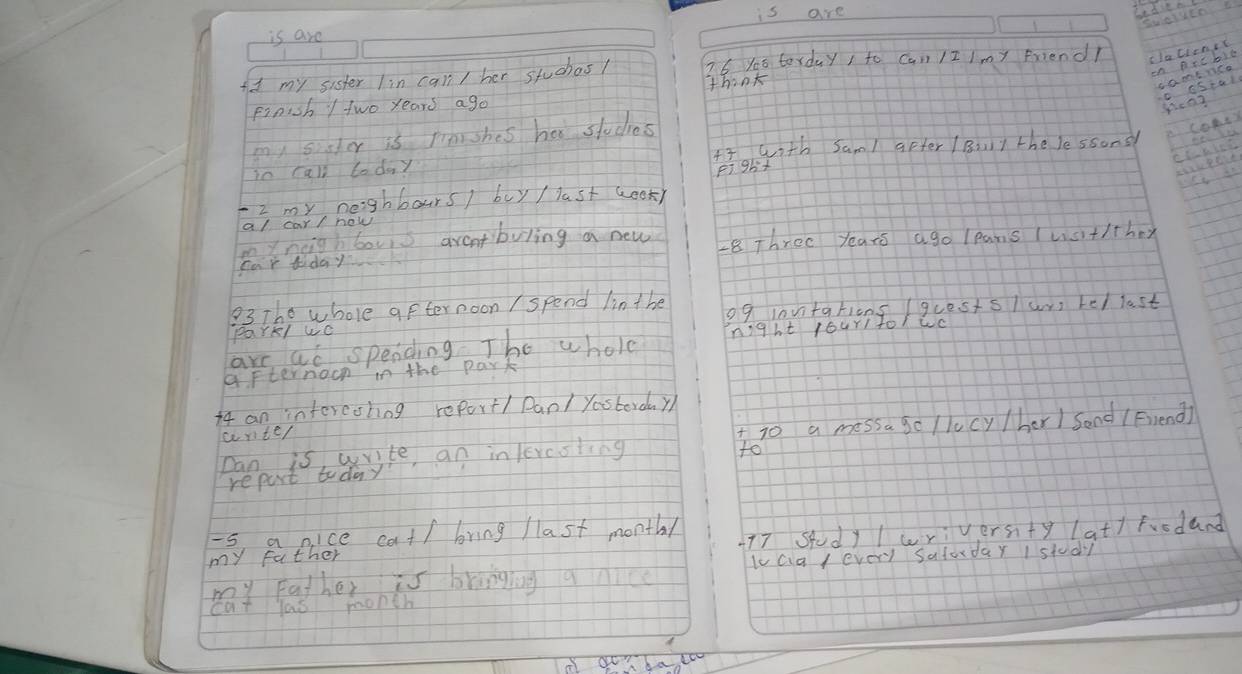 is are
+1 my sister / in cali / her studios /
Finish / two years ago
my sister is finishes her studies
in cali today
-2 my neighbours / buy / last week /
a / car / new
my neighbours arent buying a new
car today
?3 The whole afternoon / spend / in the
park / we
are we spending The whole
afternoon in the park
+4 an interesting report / Dan / Yesterday /
write /
Dan is write, an interesting
report today
-5 a nice cat / bring / last month /
my Father
my Father is bringing a nice
cat las month
is are
?6 Yesterday / to Can / I / my Friend /
think
+7 with Sam / after / Bill / the lessons /
Fight
-8 Three years ago / paris / visit / they
?9 invitations / guests / write / last
night / our / to / we
+ 10 a message / lucy / her / Send / Friend /
to
-11 Study / university / at /
lucia / every Saturday / study